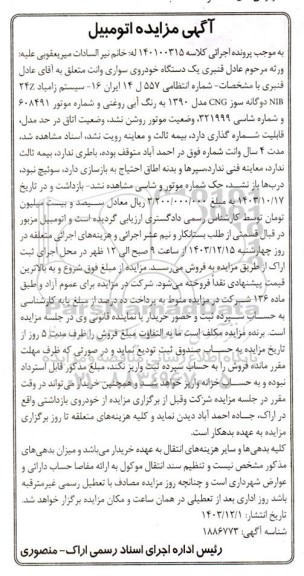 آگهی مزایده اتومبیل
به موجب پرونده اجرائی کلاسه ۱۴۰۱۰۰۳۱۵ له: خانم نیر السادات میریعقوبی علیه:
ورثه مرحوم عادل قنبری یک دستگاه خودروی سواری وانت متعلق به آقای عادل
قنبری با مشخصات- شماره انتظامی ۵۵۷ ل ۱۴ ایران ۱۶- سیستم زامیاد ۲۴%
NIB دوگانه سوز CNG مدل ۱۳۹۰ به رنگ آبی روغنی و شماره موتور ۶۰۸۴۹۱
و شماره شاسی ۳۲۱۹۹۹، وضعیت موتور روشن نشد، وضعیت اتاق در حد مدل،
قابلیت شماره گذاری دارد، بیمه ثالث و معاینه رویت نشد، اسناد مشاهده شد،
مدت ۴ سال وانت شماره فوق در احمد آباد متوقف بوده، باطری ندارد، بیمه ثالث
ندارد، معاینه فنی ندارد، سپرها و بدنه اطاق احتیاج به بازسازی دارد، سوئیچ نبود،
درب‌ها باز نشد، حک شماره موتور و شاسی مشاهده نشد- بازداشت و در تاریخ
۱۴۰۳/۱۰/۱۷ به مبلغ ۳/۲۰۰/۰۰۰/۰۰۰ ریال معادل سیصد و بیست میلیون
تومان توسط کارشناس رسمی دادگستری ارزیابی گردیده است و اتومبیل مزبور
در قبال قسمتی از طلب بستانکار و نیم عشر اجرائی و هزینه‌های اجرائی متعلقه در
روز چهارشنبه ۱۴۰۳/۱۲/۱۵ از ساعت ۹ صبح الی ۱۲ ظهر در محل اجرای ثبت
اراک از طریق مزایده به فروش می‌رسد. مزایده از مبلغ فوق شروع و به بالاترین
قیمت پیشنهادی نقدا فروخته می‌شود. شرکت در مزایده برای عموم آزاد و طبق
ماده ۱۳۶ شرکت در مزایده منوط به پرداخت ده درصد از مبلغ پایه کارشناسی
به حساب سپرده ثبت و حضور خریدار یا نماینده قانونی وی در جلسه مزایده
است. برنده مزایده مکلف است ما به التفاوت مبلغ فروش را ظرف مدت ۵ روز از
تاریخ مزایده به حساب صندوق ثبت تودیع نماید و در صورتی که ظرف مهلت
مقرر مانده فروش را به حساب سپرده ثبت واریز نکند، مبلغ مذکور قابل استرداد
نبوده و به حساب خزانه واریز خواهد شد و همچنین خریدار می‌تواند در وقت
مقرر در جلسه مزایده شرکت وقبل از برگزاری مزایده از خودروی بازداشتی واقع
در اراک، جاده احمد آباد دیدن نماید و کلیه هزینه‌های متعلقه تا روز برگزاری
مزایده به عهده بدهکار است.
کلیه بدهی‌ها و سایر هزینه‌های انتقال به عهده خریدار می‌باشد و میزان بدهی‌های
مذکور مشخص نیست و تنظیم سند انتقال موکول به ارائه مفاصا حساب دارائی و
عوارض شهرداری است و چنانچه روز مزایده مصادف با تعطیل رسمی غیرمترقبه
باشد روز اداری بعد از تعطیلی در همان ساعت و مکان مزایده برگزار خواهد شد.
تاریخ انتشار: ۱۴۰۳/۱۲/۱
شناسه آگهی: ۱۸۸۶۷۷۳
رئیس اداره اجرای اسناد رسمی اراک- منصوری